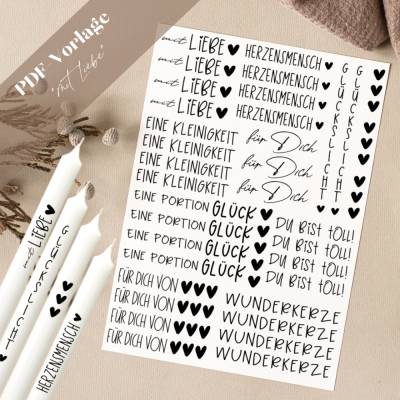 PDF Vorlage
"mit Liebe"
mit LIEBE
GLÜCKSLICHT
HERZENSMENSCH
mit LIEBE HERZENSMENSCH
mit LIEBE HERZENSMENSCH
mit LIEBE HERZENSMENSCH
mit LIEBE HERZENSMENSCH
GLÜCKSLICHT
GLÜCKSLICHT
EINE KLEINIGKEIT für Dich
EINE KLEINIGKEIT
EINE KLEINIGKEIT für Dich
EINE KLEINIGKEIT für Dich
EINE PORTION GLÜCK DU BIST TOLL!
EINE PORTION GLÜCK DU BIST TOLL!
EINE PORTION GLÜCK DU BIST TOLL!
EINE PORTION GLÜCK DU BIST TOLL!
FÜR DICH VON WUNDERKERZE
FÜR DICH VON WUNDERKERZE
FÜR DICH VON WUNDERKERZE
FÜR DICH VON WUNDERKERZE